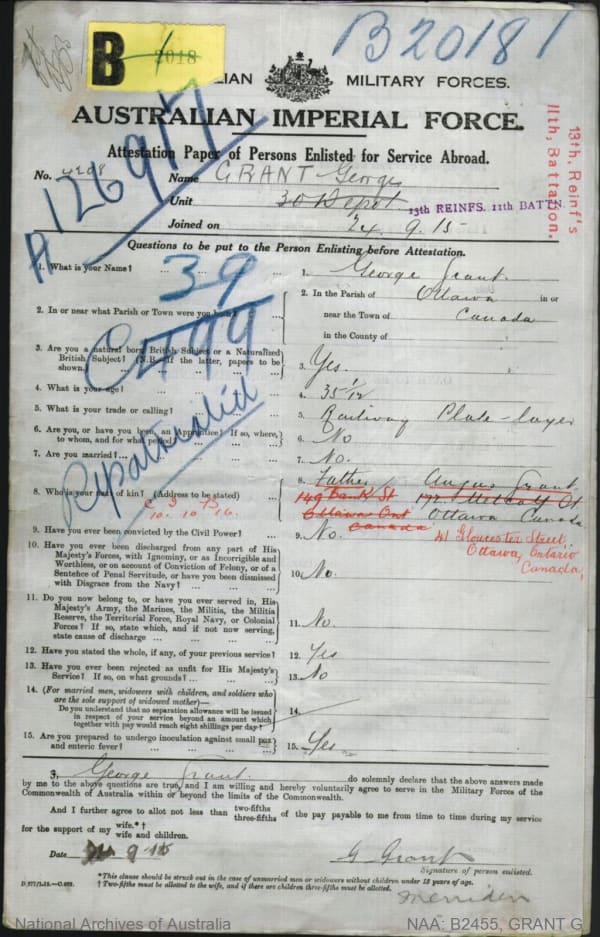 B 2018
B20181
AUSTRALIAN MILITARY FORCES.
AUSTRALIAN IMPERIAL FORCE.
Attestation Paper of Persons Enlisted for Service Abroad.
13th. Reinf's
11th. Battalion.
A12691
No. 4208 Name GRANT George
Unit 30 Depot 13th REINFS. 11th BATTN.
Joined on 24. 9. 15
Questions to be put to the Person Enlisting before Attestation.
39
1. What is your Name? ... 1. George Grant
2. In or near what Parish or Town were you born? 2. In the Parish of Ottawa in or
near the Town of Canada
in the County of
3. Are you a natural born British Subject or a Naturalized
British Subject? (N.B. If the latter, papers to be
shown.) 3. Yes.
4. What is your age? 4. 35 1/12
5. What is your trade or calling? 5. Railway Plate-layer
6. Are you, or have you been, an Apprentice? If so, where,
to whom, and for what period? 6. No
7. Are you married? ... 7. No.
Repatriated
8. Who is your next of kin? (Address to be stated) 8. Father Angus Grant
149 Bank St 177 Metcalf St
Ottawa Ont Ottawa Canada
Canada
10. 10. 16.
41 Gloucester Street,
Ottawa, Ontario
Canada,
9. Have you ever been convicted by the Civil Power? 9. No.
10. Have you ever been discharged from any part of His
Majesty's Forces, with Ignominy, or as Incorrigible and
Worthless, or on account of Conviction of Felony, or of a
Sentence of Penal Servitude, or have you been dismissed
with Disgrace from the Navy? ... 10. No.
11. Do you now belong to, or have you ever served in, His
Majesty's Army, the Marines, the Militia, the Militia
Reserve, the Territorial Force, Royal Navy, or Colonial
Forces? If so, state which, and if not now serving,
state cause of discharge ... 11. No.
12. Have you stated the whole, if any, of your previous service? 12. Yes
13. Have you ever been rejected as unfit for His Majesty's
Service? If so, on what grounds? 13. No
14. (For married men, widowers with children, and soldiers who
are the sole support of widowed mother)—
Do you understand that no separation allowance will be issued
in respect of your service beyond an amount which
together with pay would reach eight shillings per day? 14.
15. Are you prepared to undergo inoculation against small pox
and enteric fever? ... 15. Yes
I, George Grant do solemnly declare that the above answers made
by me to the above questions are true, and I am willing and hereby voluntarily agree to serve in the Military Forces of the
Commonwealth of Australia within or beyond the limits of the Commonwealth.
And I further agree to allot not less than two-fifths three-fifths of the pay payable to me from time to time during my service
for the support of my wife.*†
wife and children.
Date 24 9 15 G Grant
Signature of person enlisted.
*This clause should be struck out in the case of unmarried men or widowers without children under 18 years of age.
† Two-fifths must be allotted to the wife, and if there are children three-fifths must be allotted.
National Archives of Australia NAA: B2455, GRANT G